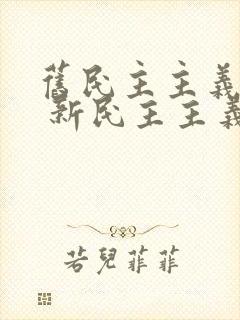 舊民主主義
新民主主義
若兒菲菲